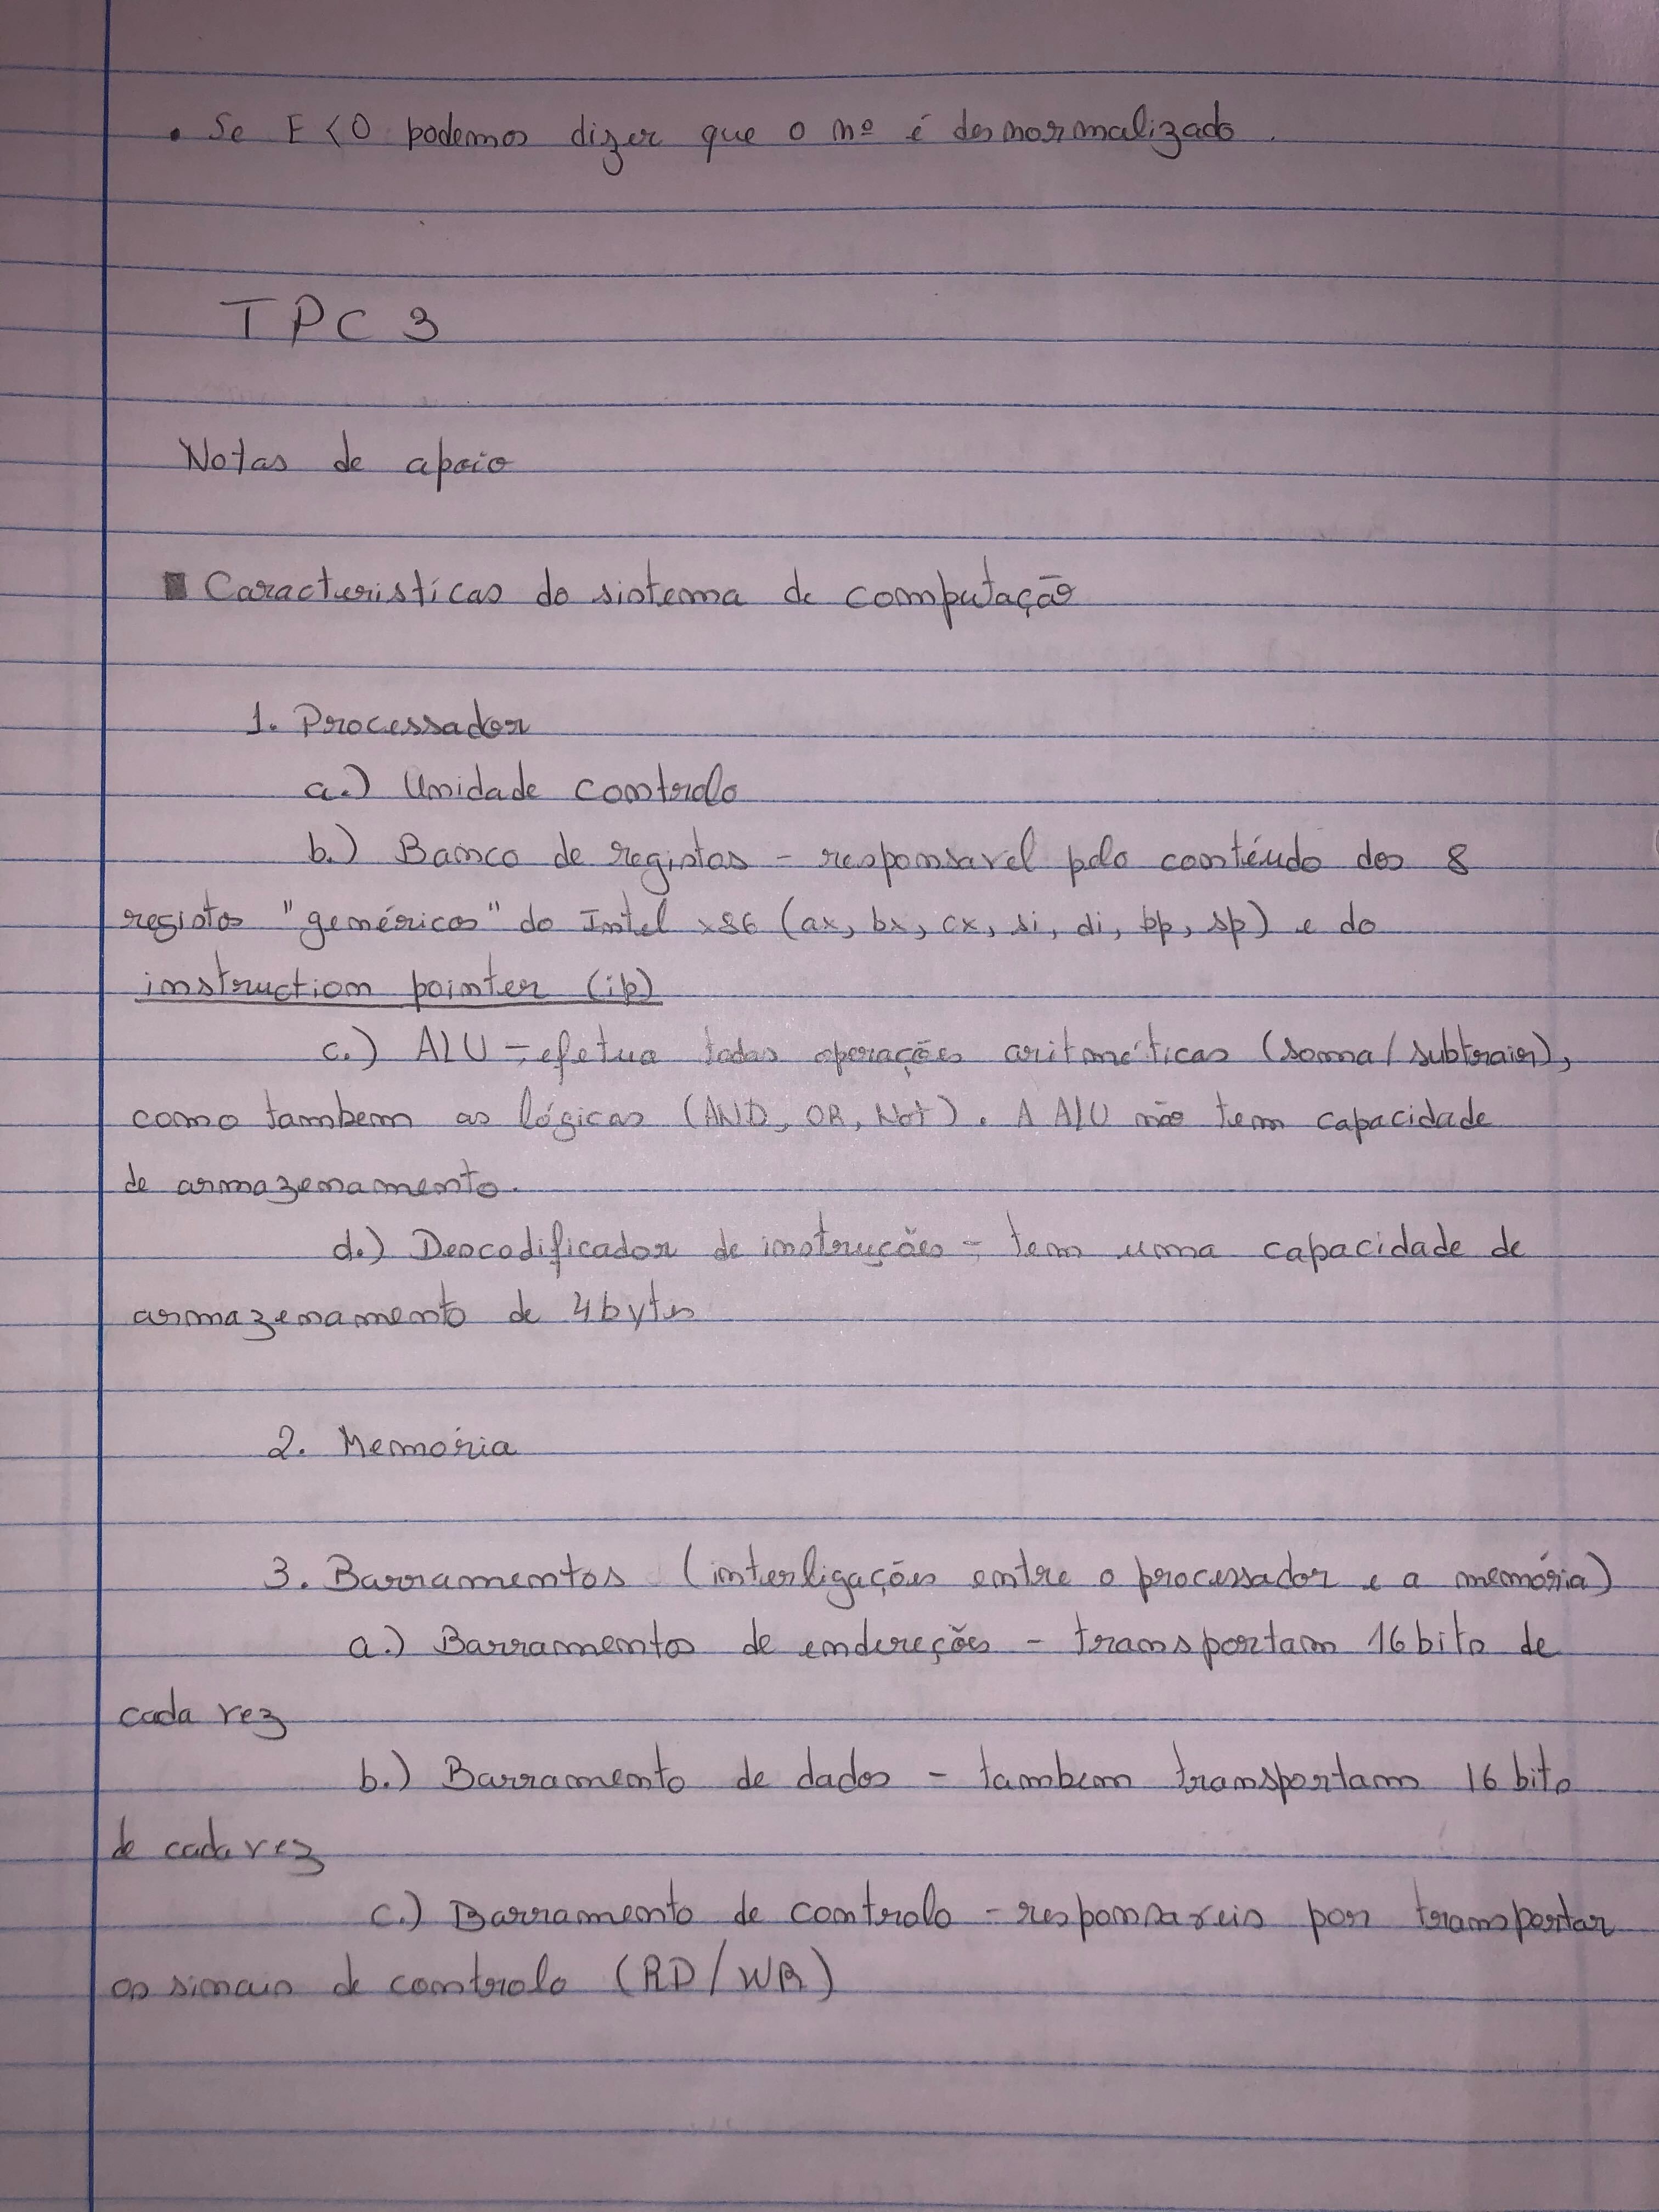 • Se E<0 podemos dizer que o nº é desnormalizado.
TPC 3
Notas de apoio
Caracteristicas do sistema de computação
1. Processador
a.) Unidade controlo
b.) Banco de registos - responsavel pelo contéudo dos 8
registos "genéricos" do Intel x86 (ax, bx, cx, si, di, bp, sp) e do
instruction pointer (ip)
c.) ALU - efetua todas operações aritméticas (soma/subtrair),
como tambem as lógicas (AND, OR, Not). A ALU não tem capacidade
de armazenamento.
d.) Descodificador de instruções - tem uma capacidade de
armazenamento de 4bytes
2. Memória
3. Barramentos (interligações entre o processador e a memória)
a.) Barramentos de endereções - transportam 16 bits de
cada vez
b.) Barramento de dados - tambem transportam 16 bits
de cada vez
c.) Barramento de controlo - responsaveis por transportar
os sinais de controlo (RD/WR)